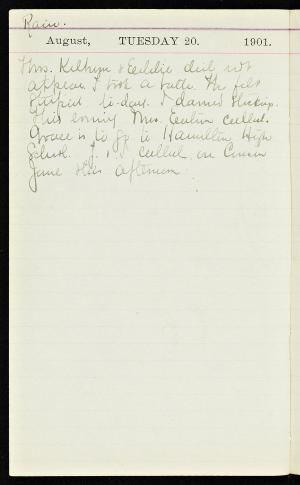 Rain.
August, TUESDAY 20. 1901.
Mrs. & Eddie did not
appear. I took a bath. Mr felt
stupid to-day. I darned stockings.
This evening Mrs. called.
Grace is to go to Hamilton High
School. J. & I called on Cousin
Jane this afternoon.